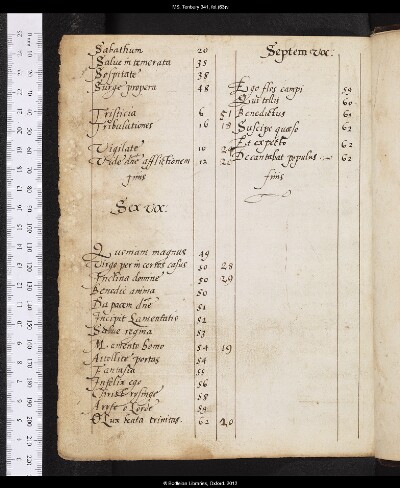 MS. Tenbury 341, fol. i63v
Sabathum 20
Salue intemerata 35
Sospitate 38
Surge propera 48
Tristicia 6 51
Tribulationes 16 18
Vigilate 10
Vide dñe afflictionem 12
finis
Sex vx:
Quoniam magnus 49
Virgo per incertos casus 50 28
Inclina domine 50 29
Benedic anima 50
Da pacem dñe 51
Incipit Lamentatio 52
Salue regina 53
Memento homo 54 19
Attollite portas 54
Fantasia 55
Infelix ego 56
Christ rysinge 58
Aryse o Lorde 59
O Lux beata trinitas. 62 20
Septem vx:
Ego flos campi 59
Qui tollis 60
Benedictus
Suscipe quæso 62
Et expecto 62
Decantabat populus 62
finis
© Bodleian Libraries, Oxford, 2012